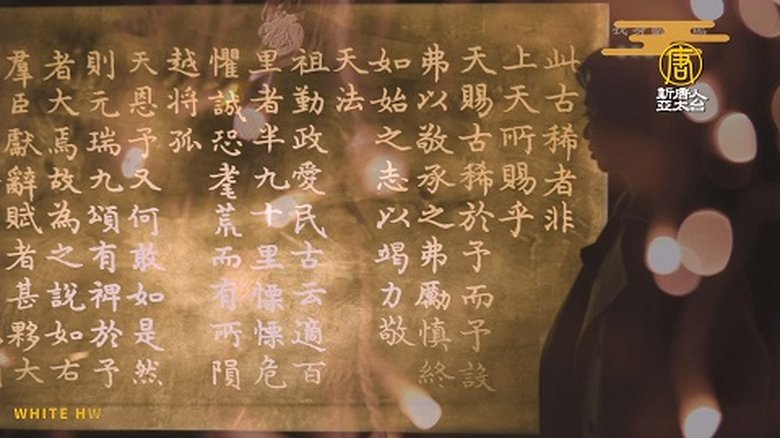 此古稀者非
上天所賜乎
天賜古稀於予而予設
弗以敬承之弗勵慎終
如始之志以竭力敬
天法
祖勤政愛民古云適百
里者半九十里慄慄危
懼誠恐耄荒而有所隕
越將孤
天恩予又何敢如是然
則元瑞九頌有裨於予
者大焉故為之說如右
羣臣獻辭賦者甚夥大
唐
新唐人
亞太台
WHITE HW